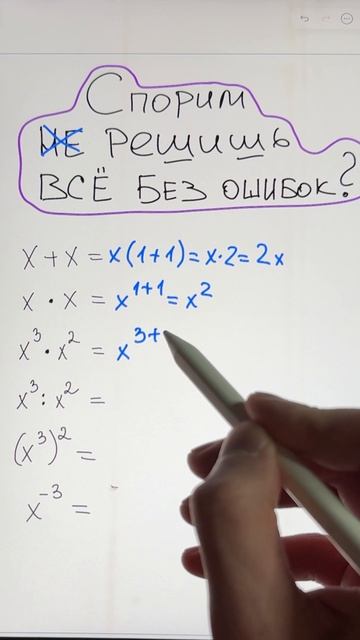 Спорим
НЕ РЕШИШЬ
ВСЁ БЕЗ ОШИБОК?
x + x = x(1+1) = x·2 = 2x
x · x = x¹⁺¹ = x²
x³ · x² = x³⁺
x³ : x² =
(x³)² =
x⁻³ =